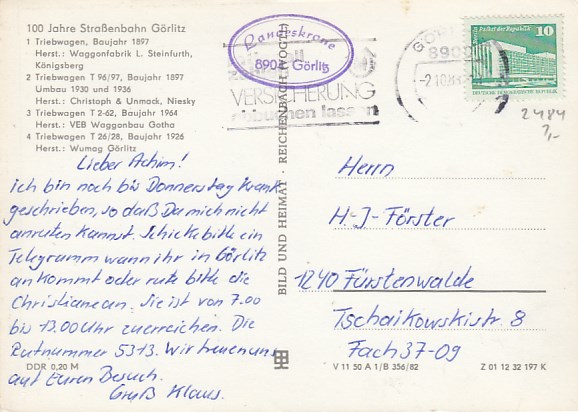 100 Jahre Straßenbahn Görlitz
1 Triebwagen, Baujahr 1897
Herst.: Waggonfabrik L. Steinfurth,
Königsberg
2 Triebwagen T 96/97, Baujahr 1897
Umbau 1930 und 1936
Herst.: Christoph & Unmack, Niesky
3 Triebwagen T 2-62, Baujahr 1964
Herst.: VEB Waggonbau Gotha
4 Triebwagen T 26/28, Baujahr 1926
Herst.: Wumag Görlitz
Lieber Achim!
ich bin noch bis Donnerstag krank
geschrieben, so daß Du mich nicht
anrufen kannst. Schicke bitte ein
Telegramm wann ihr in Görlitz
ankommt oder rufe bitte die
Christiane an. Sie ist von 7.00
bis 13.00 Uhr zu erreichen. Die
Rufnummer 5313. Wir freuen uns
auf Euren Besuch.
Gruß Klaus.
DDR 0,20 M
BILD UND HEIMAT · REICHENBACH (VOGTL)
Landeskrone
8904 Görlitz
VERSICHERUNG
buchen lassen
8900
Palast der Republik
10
DEUTSCHE DEMOKRATISCHE REPUBLIK
2484
7,-
Herrn
H-J-Förster
1240 Fürstenwalde
Tschaikowskistr. 8
Fach 37-09
V 11 50 A 1/B 356/82
Z 01 12 32 197 K